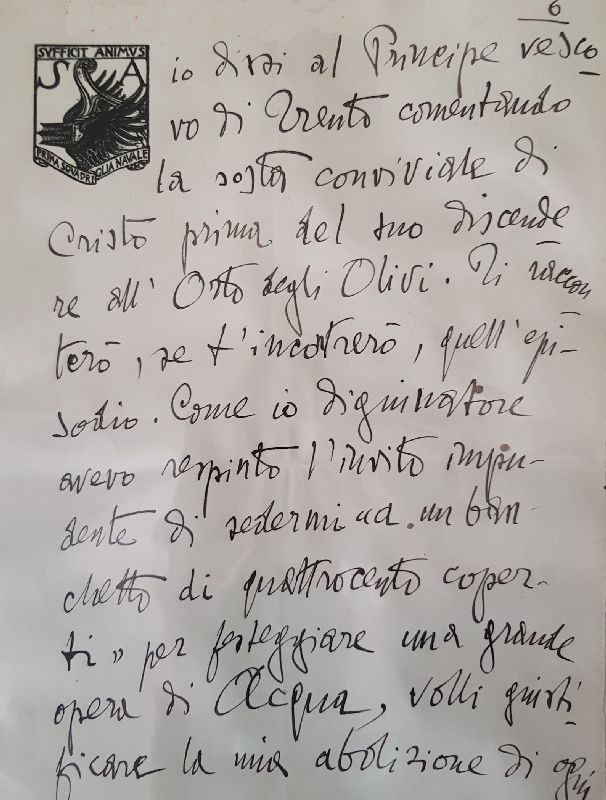 6
SVFFICIT ANIMVS
S A
PRIMA SQVADRIGLIA NAVALE
io dissi al Principe vesco
vo di Trento comentando
la sosta conviviale di
Cristo prima del suo discende
re all' Orto degli Olivi. Ti raccon
terò, se t'incontrerò, quell'epi-
sodio. Come io digiunatore
avevo respinto l'invito impu-
dente di sedermi «a un ban-
chetto di quattrocento coper-
ti» per festeggiare una grande
opera di Acqua, volli giusti
ficare la mia abolizione di ogni